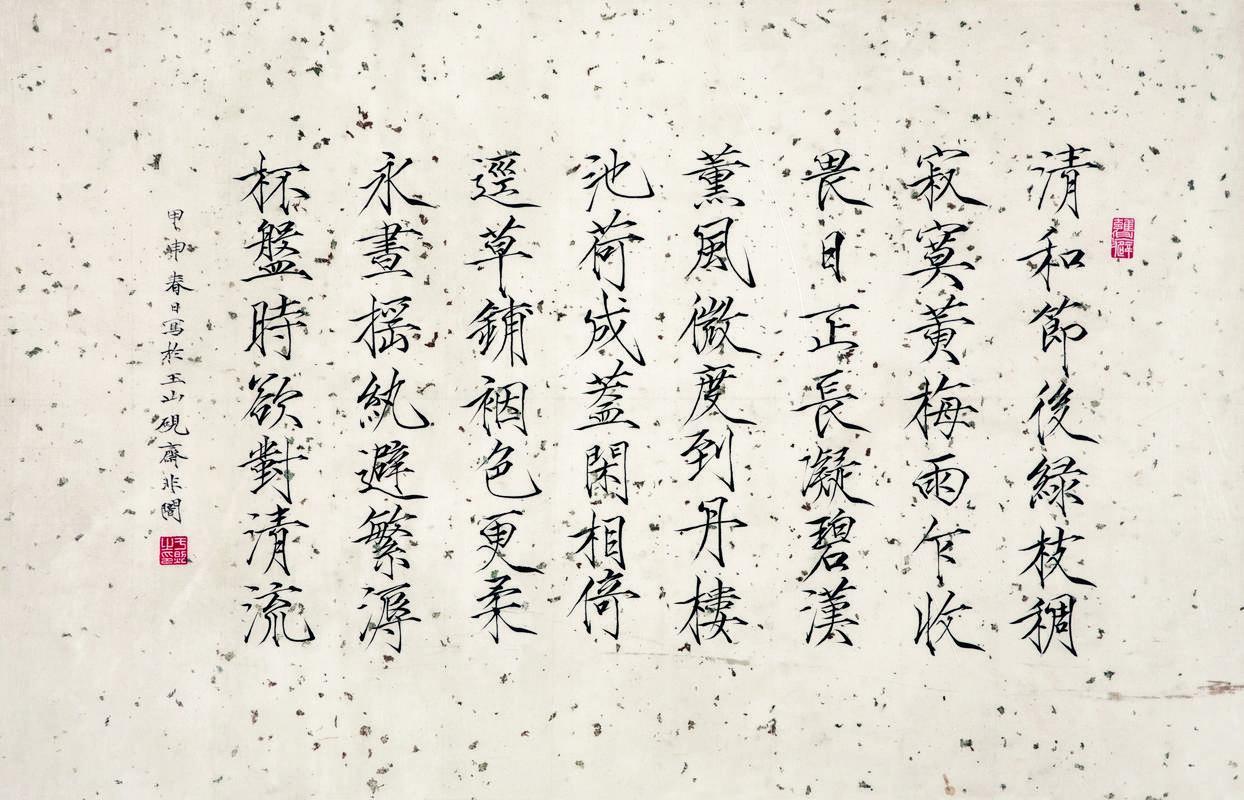 清和節後緑枝稠
寂寞黄梅雨乍收
畏日正長凝碧漢
薰風微度到丹樓
池荷成蓋閑相倚
逕草鋪裀色更柔
永晝揺紈避繁溽
杯盤時欲對清流
甲申春日寫於玉山硯齋非闇